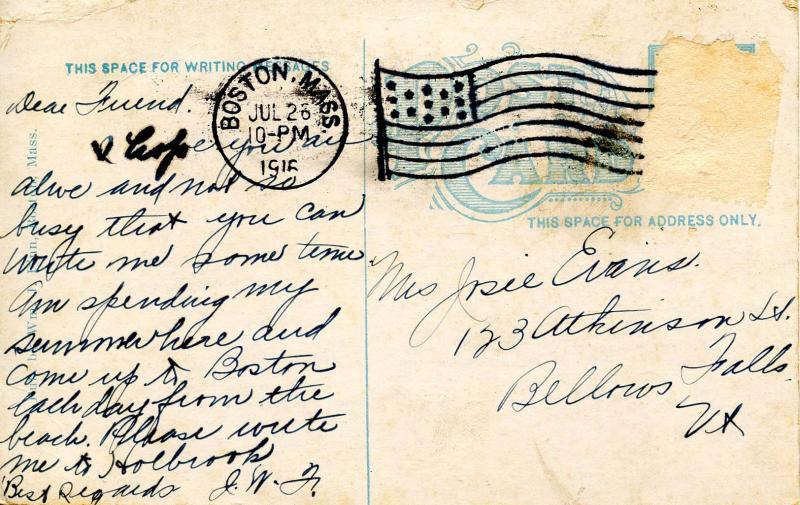 THIS SPACE FOR WRITING MESSAGES
Dear Friend.
I hope you are
alive and not so
busy that you can
write me some time
Am spending my
summer here and
come up to Boston
each day from the
beach. Please write
me to Holbrook
Best Regards J. W. F.
BOSTON, MASS.
JUL 26
10-PM
1916
CARD
THIS SPACE FOR ADDRESS ONLY.
Mrs Josie Evans.
123 Atkinson St.
Bellows Falls
Vt
Mass.